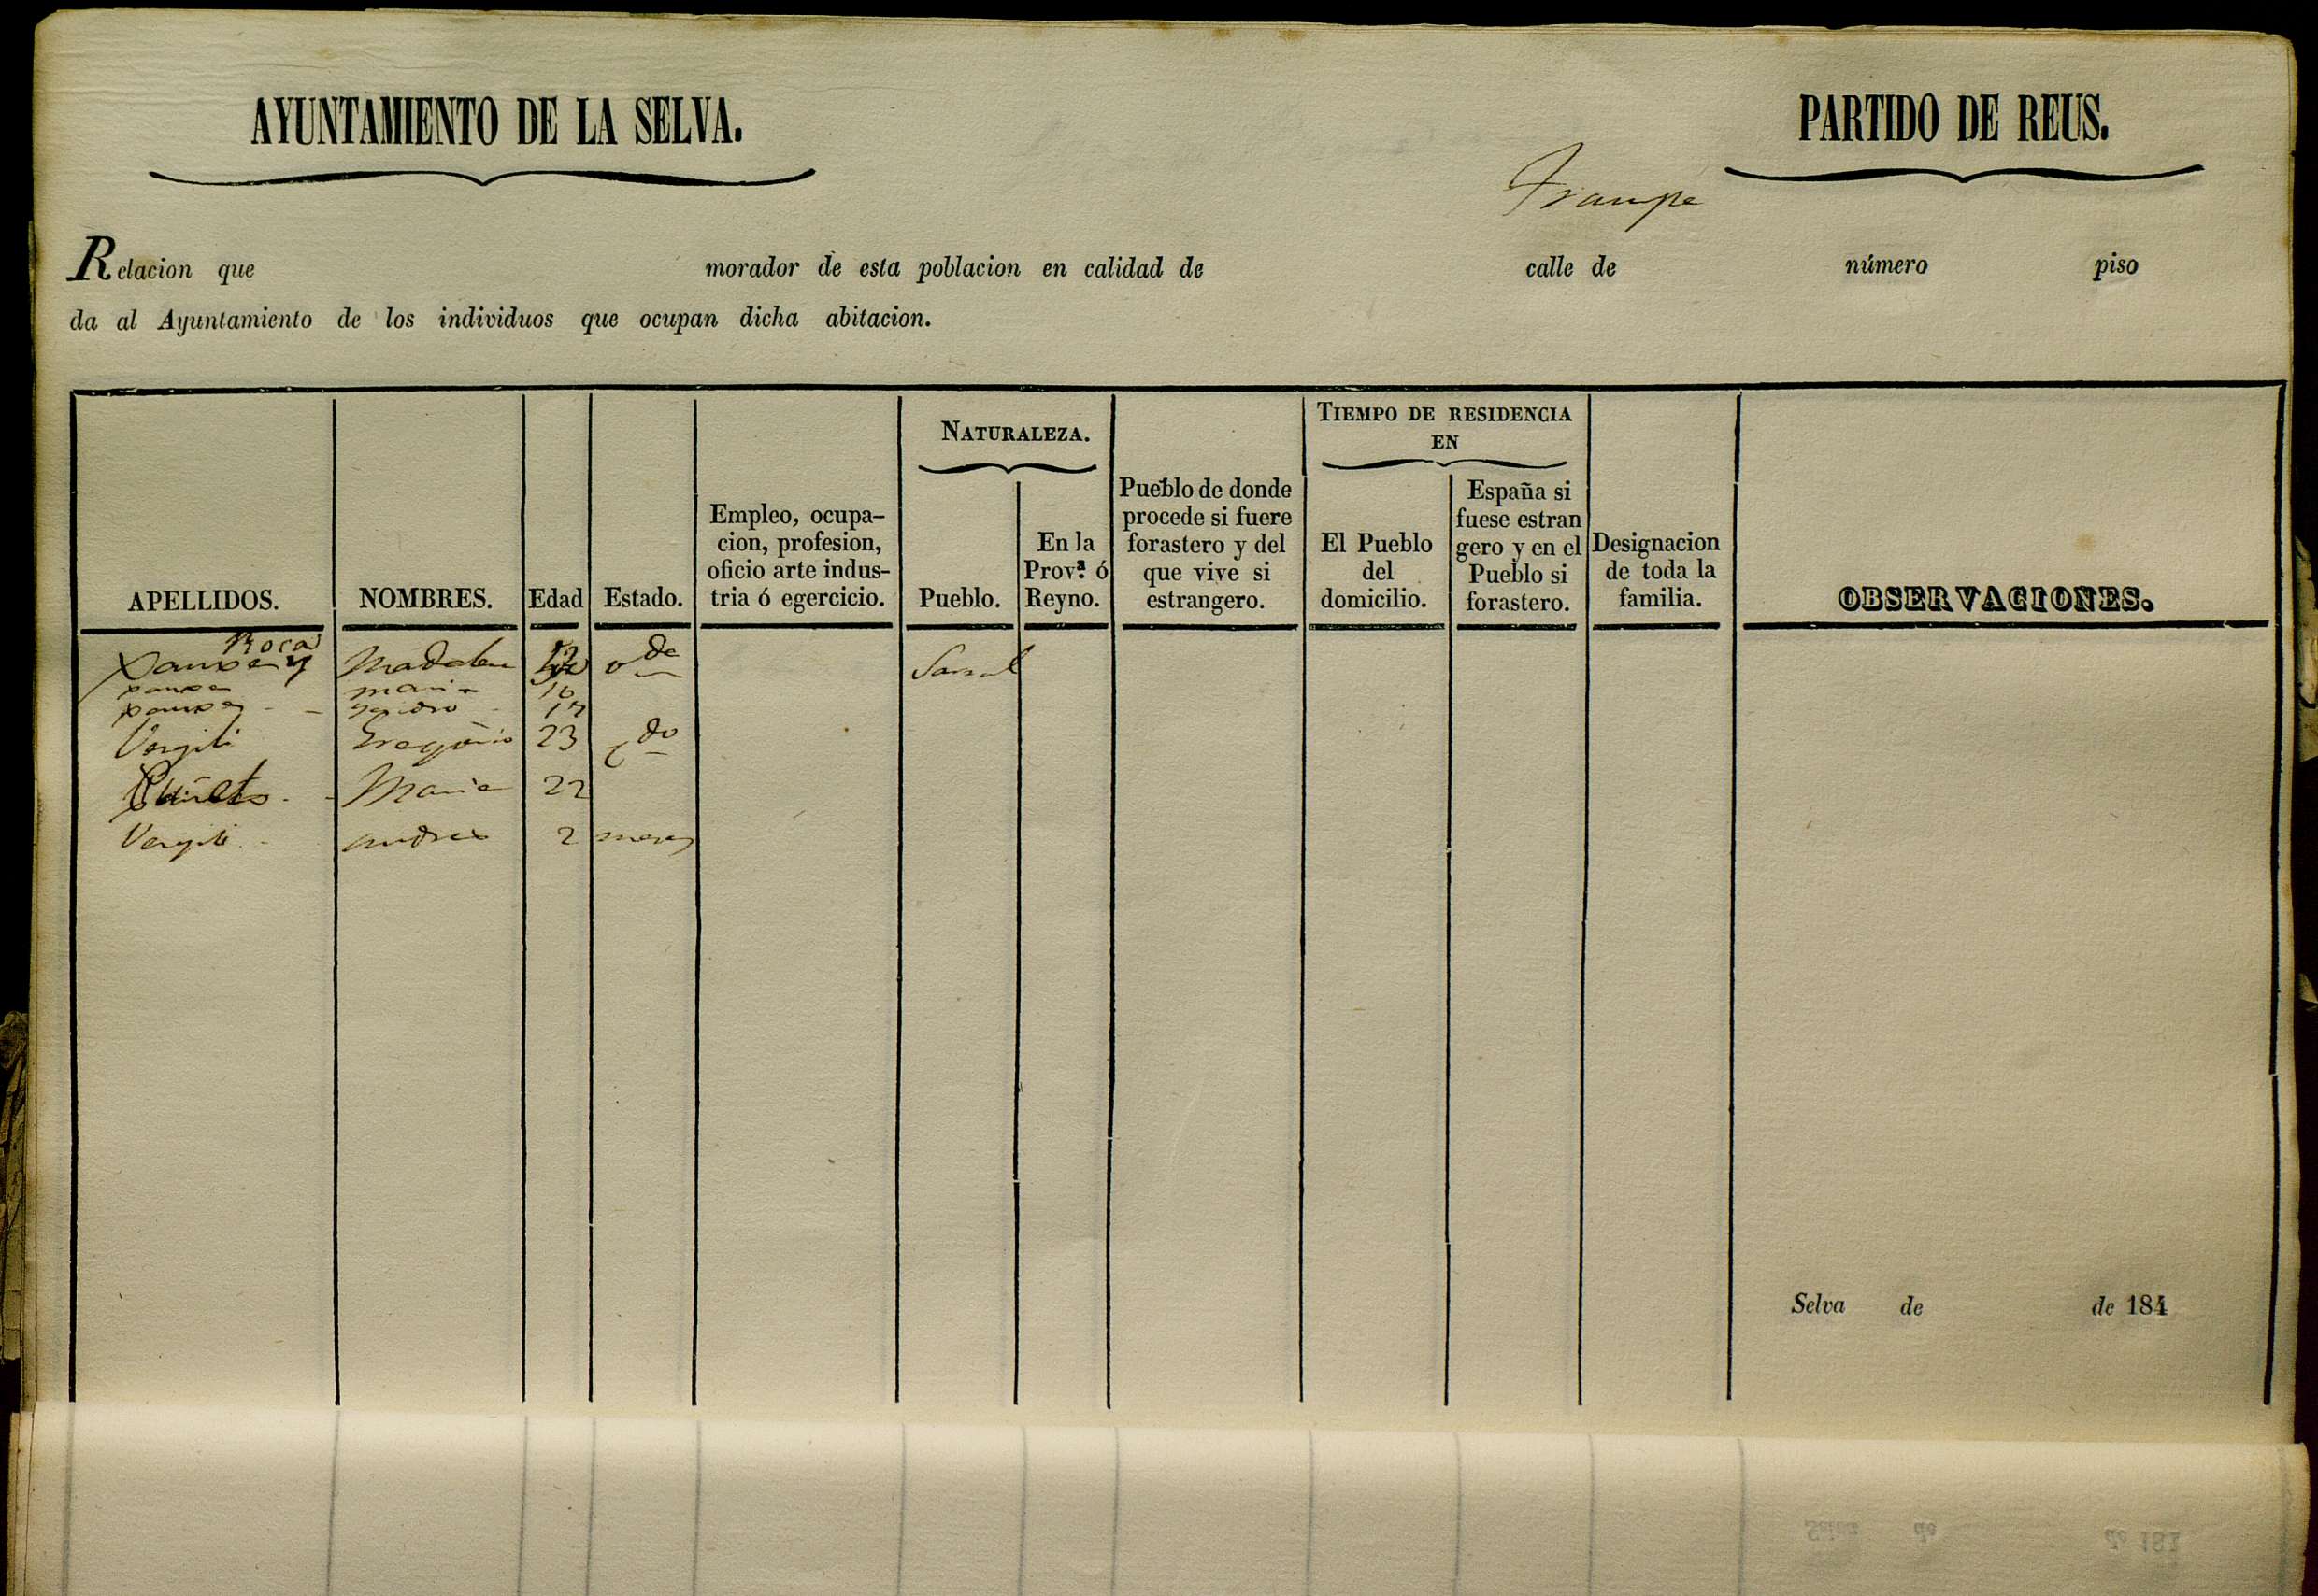 AYUNTAMIENTO DE LA SELVA.
PARTIDO DE REUS.
Relacion que morador de esta poblacion en calidad de calle de número piso
da al Ayuntamiento de los individuos que ocupan dicha abitacion.
NATURALEZA.
TIEMPO DE RESIDENCIA
EN
APELLIDOS.
NOMBRES.
Edad
Estado.
Empleo, ocupa-
cion, profesion,
oficio arte indus-
tria ó egercicio.
Pueblo.
En la
Prov.ª ó
Reyno.
Pueblo de donde
procede si fuere
forastero y del
que vive si
estrangero.
El Pueblo
del
domicilio.
España si
fuese estran
gero y en el
Pueblo si
forastero.
Designacion
de toda la
familia.
OBSERVACIONES.
Roca
Madalena v da
Maria 16
17
Vergili Gregorio 23 c do
Maria 22
Vergili Andreu 2 meses
Selva de de 184